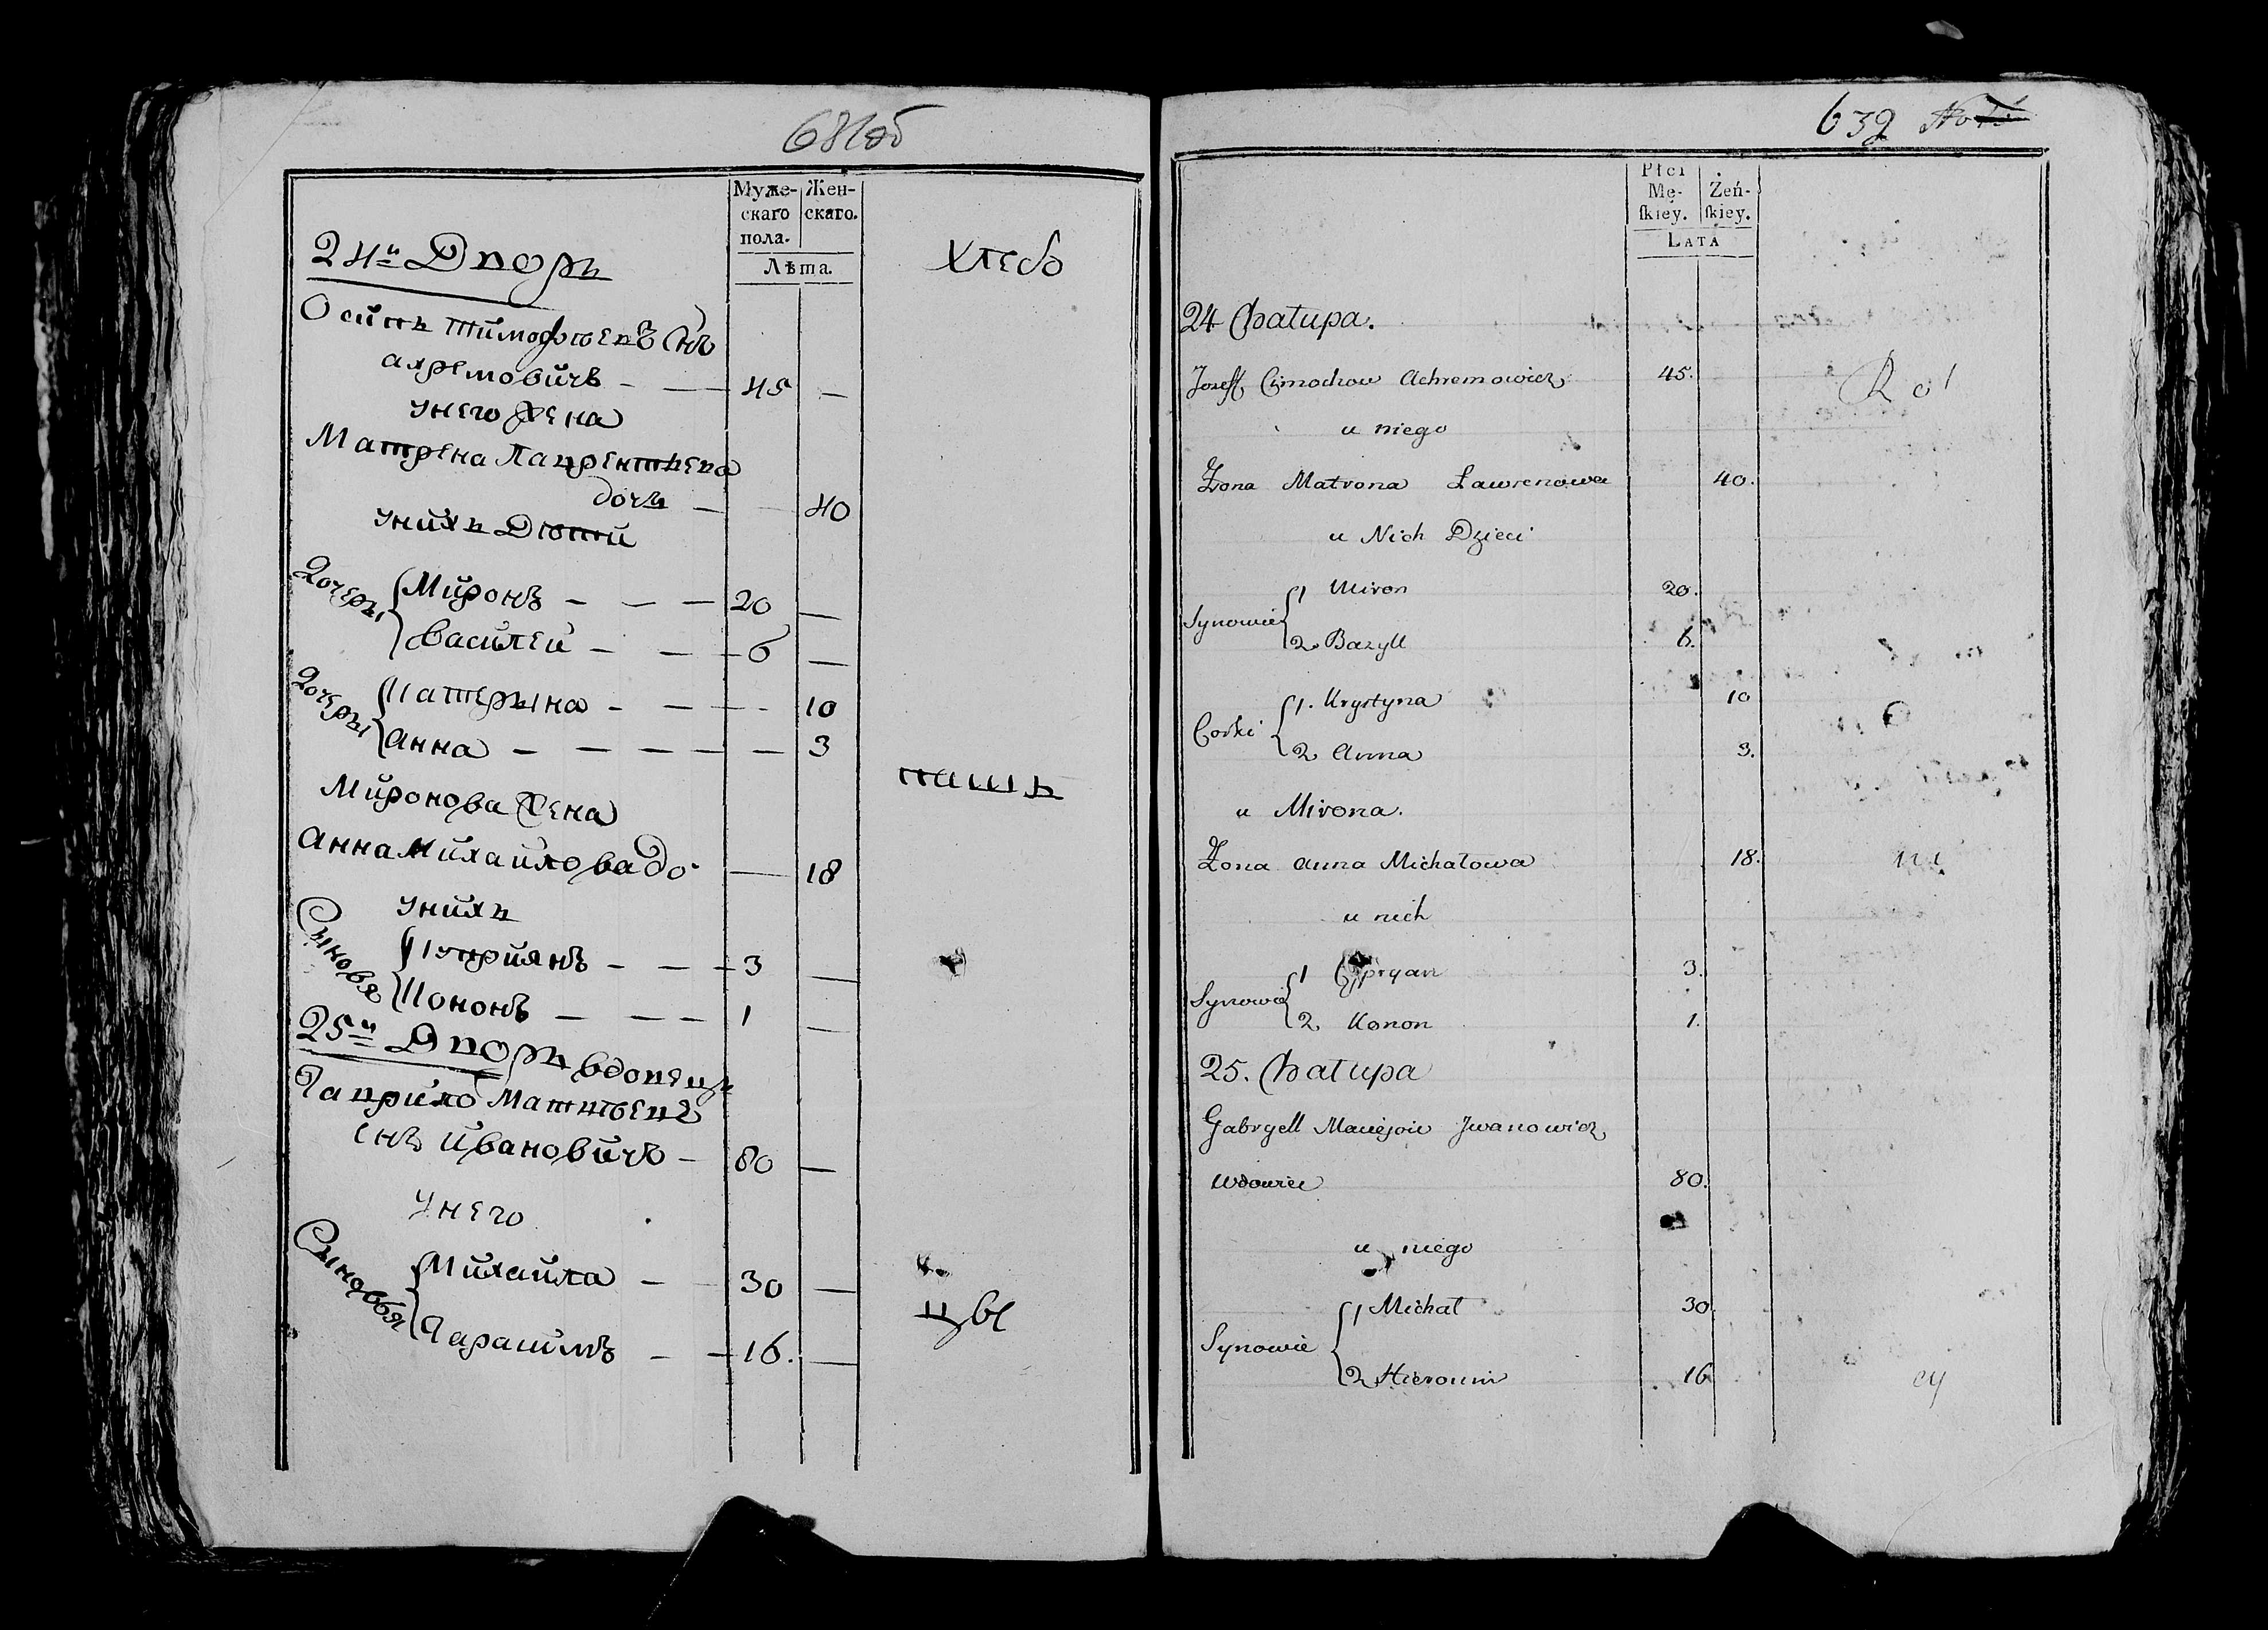 681об
Муже-
скаго
пола.
Жен-
скаго.
Лѣта.
24й Дворъ
хлебо
Осипъ Тимофѣевъ Снъ
Ахремовичъ — — 45 —
Унего Жена
Матрена Лаврентьева
дочь — — 40
Унихъ Дѣтей
Дочеры { Миронъ — — — 20 —
Василей — — — 6 —
Дочеры { Катерына — — — 10
Анна — — — — — 3
паш
Миронова Жена
Анна Михайлова до — 18
Унихъ
Сыновя { Куприянъ — — — 3 —
Кононъ — — — 1 —
25й Дворъ вдовецъ
Гаврило Матвѣевъ
Снъ Ивановичъ — 80 —
Унего
Сыновья { Михайла — — 30 —
цы
Гарасимъ — — 16. —
639 No
Płci
Mę-
skiey.
Żeń-
skiey.
Lata
24 Chatupa.
Jozeff Cimochow Achremowicz 45.
Rol
u niego
Zona Matrona Ławrenowa 40.
u Nich Dzieci
Synowie { 1 Miron 20.
2 Bazyll 6.
Corki { 1. Krystyna 10
2 Anna 3.
u Mirona.
Zona Anna Michałowa 18.
ni
u nich
Synowie { 1 Cypryan 3.
2 Konon 1.
25. Chatupa
Gabryell Maciejow Jwanowicz
Wdowiec 80.
u niego
Synowie { 1 Michał 30.
2 Hieronim 16
cy